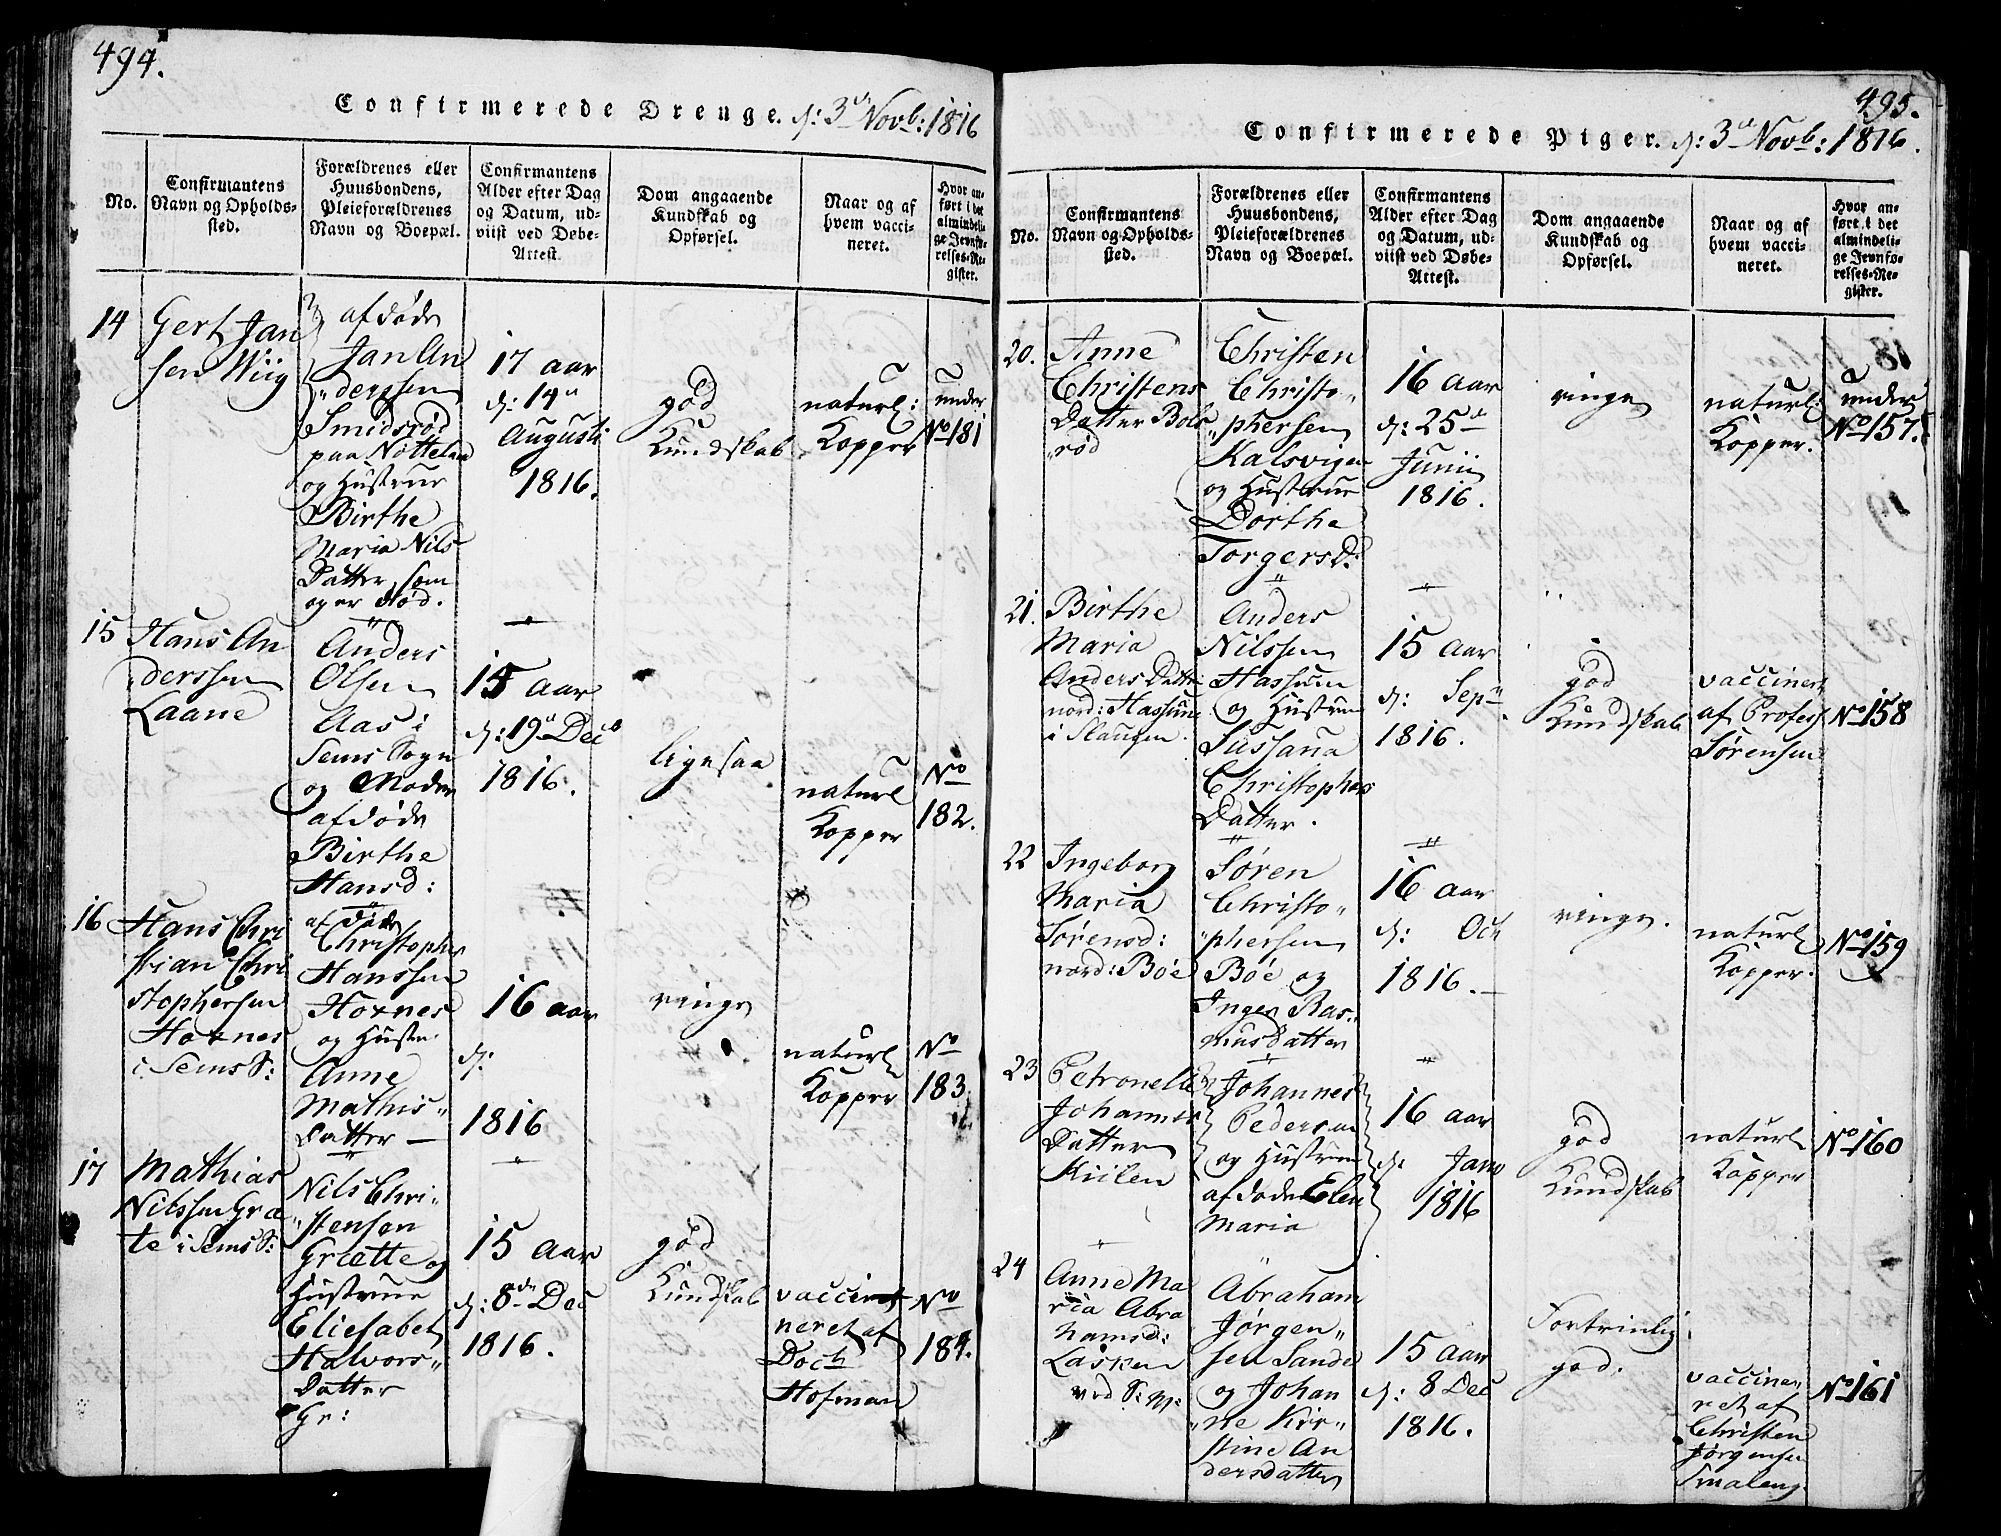 494.
Confirmerede Drenge. d: 3de Novb: 1816
No.
Confirmantens
Navn og Opholds-
sted.
Forældrenes eller
Huusbondens,
Pleieforældrenes
Navn og Boepæl.
Confirmantens
Alder efter Dag
og Datum, ud-
viist ved Døbe-
Attest.
Dom angaaende
Kundskab og
Opførsel.
Naar og af
hvem vacci-
neret.
Hvor an-
ført i det
almindeli-
ge Jevnfø-
relses-Re-
gister.
14
Gert Jan
sen Wiig
afdøde
Jan An
derssen
Smidsrød
paa Nøttelan
og Hustrue
Birthe
Maria Nils
Datter, som
og er død.
17 aar
d: 14de
Augusti
1816.
god
Kundskab
naturl:
Kopper
under
No 181
15
Hans An
derssen
Laane
Anders
Olsen
Aas i
Sems Sogn
og Moder
afdøde
Birthe
Hansd:
15 aar
d: 19de Decb
1816.
ligesaa
naturl
Kopper
No
182.
16
Hans Chri
stian Chri
stophersen
Hoxnes
i Sems S:
afdøde
Christopher
Hanssen
Hoxnes
og Hustru:
Anne
Mathis-
Datter —
16 aar
d:
1816
ringe
naturl
Kopper
No
183
17
Mathias
Nilssen Græ
te i Sems S:
Nils Chri-
stensen
Grætte og
Hustrue
Eliesabet
Halvors-
Datter
Gr:
15 aar
d: 8de Dec
1816.
god
Kundskab
vacci
neret af
Doct
Hofman
No
184.
495.
Confirmerede Piger. d: 3de Novb: 1816.
No.
Confirmantens
Navn og Opholds-
sted.
Forældrenes eller
Huusbondens,
Pleieforældrenes
Navn og Boepæl.
Confirmantens
Alder efter Dag
og Datum, ud-
viist ved Døbe-
Attest.
Dom angaaende
Kundskab og
Opførsel.
Naar og af
hvem vacci-
neret.
Hvor an-
ført i det
almindeli-
ge Jevnfø-
relses-Re-
gister.
20.
Anne
Christens
Datter Bols
rød
Christen
Christo-
phersen
Kalsvigen
og Hustrue
Dorthe
Torgersd:
16 aar
d: 25de
Junii
1816.
ringe
naturl:
Kopper.
under
No 157.
21.
Birthe
Maria
Anders Datter
nord: Hassum
i Slaugen.
Anders
Nilssen
Hassum
og Hustrue
Sussana
Christophers
Datter.
15 aar
d: Sep
1816.
god
Kundskab
vaccineret
af Profess
Sørensen
No 158
22
Ingeborg
Maria
Sørensd:
nord: Bøe
Søren
Christo-
phersen
Bøe og
Inger Ras-
musdatter
16 aar
d: Oct
1816. —
ringe.
naturl
Kopper.
No 159
23
Petronelle
Johannes
Datter
Kiilen
Johannes
Pedersen
og Hustrue
afdøde Elen
Maria
16 aar
d. Janu
1816
god
Kundskab
naturl
Kopper
No 160
24
Anne Ma
ria Abra
hamsd:
Lasken
ved
Abraham
Jørgen-
sen Sande
og Johan
ne Kir-
stine An
dersdatter
15 aar
d: 8 Dec
1816.
Fortrinlig
god.
vaccine-
ret af
Christen
Jørgensen
Smaleng
No 161